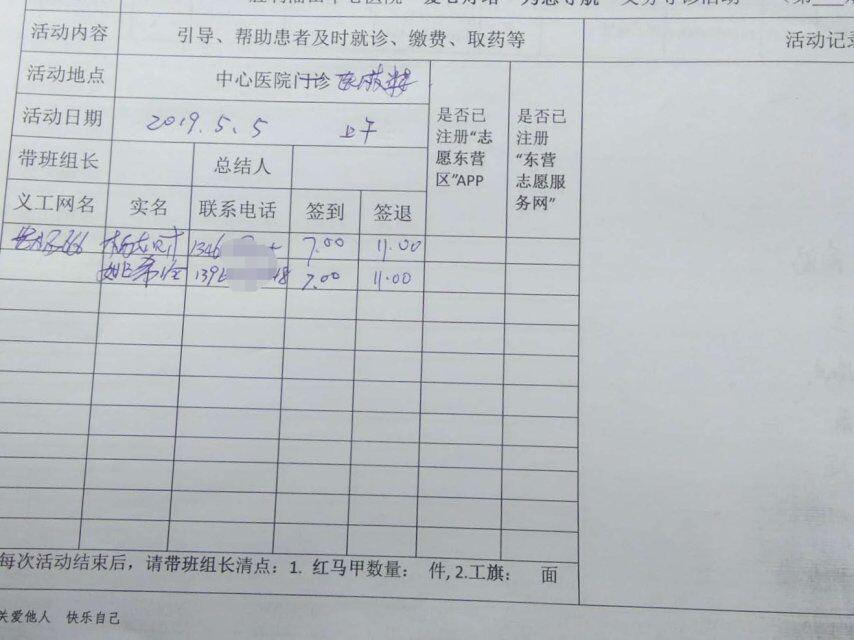 胜利油田中心医院"爱心灯塔、为您导航"义务导诊活动 （第
活动内容 引导、帮助患者及时就诊、缴费、取药等 活动记录
活动地点 中心医院门诊
活动日期 2019.5.5 上午
是否已注册“志愿东营区”APP
是否已注册“东营志愿服务网”
带班组长 总结人
义工网名 实名 联系电话 签到 签退
1346 7.00 11.00
139 18 7.00 11.00
每次活动结束后，请带班组长清点：1. 红马甲数量： 件, 2.工旗： 面
关爱他人 快乐自己